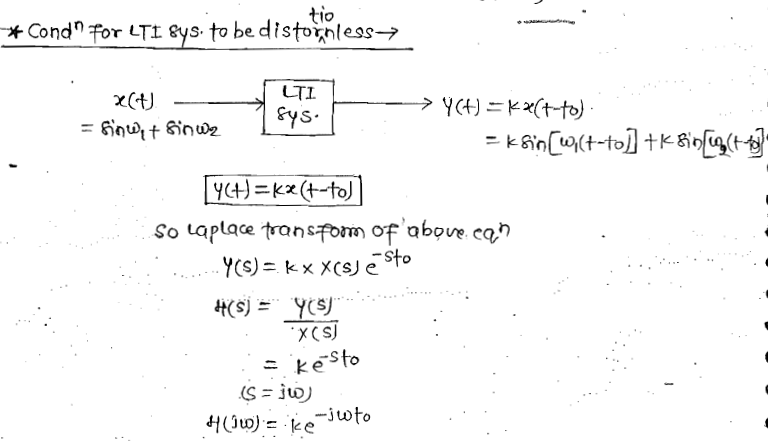 * Condⁿ For LTI sys. to be distortionless→
x(t)
LTI
sys.
y(t) = kx(t-to).
= sinω₁t + sinω2
= k sin[ω₁(t-to)] + k sin[ω₂(t-to)]
y(t) = kx(t-to)
So laplace transfoom of above eqn
Y(s) = k x X(s) e^-sto
H(s) = Y(s)
X(s)
= ke^-sto
(s = jω)
H(jω) = ke^-jωto